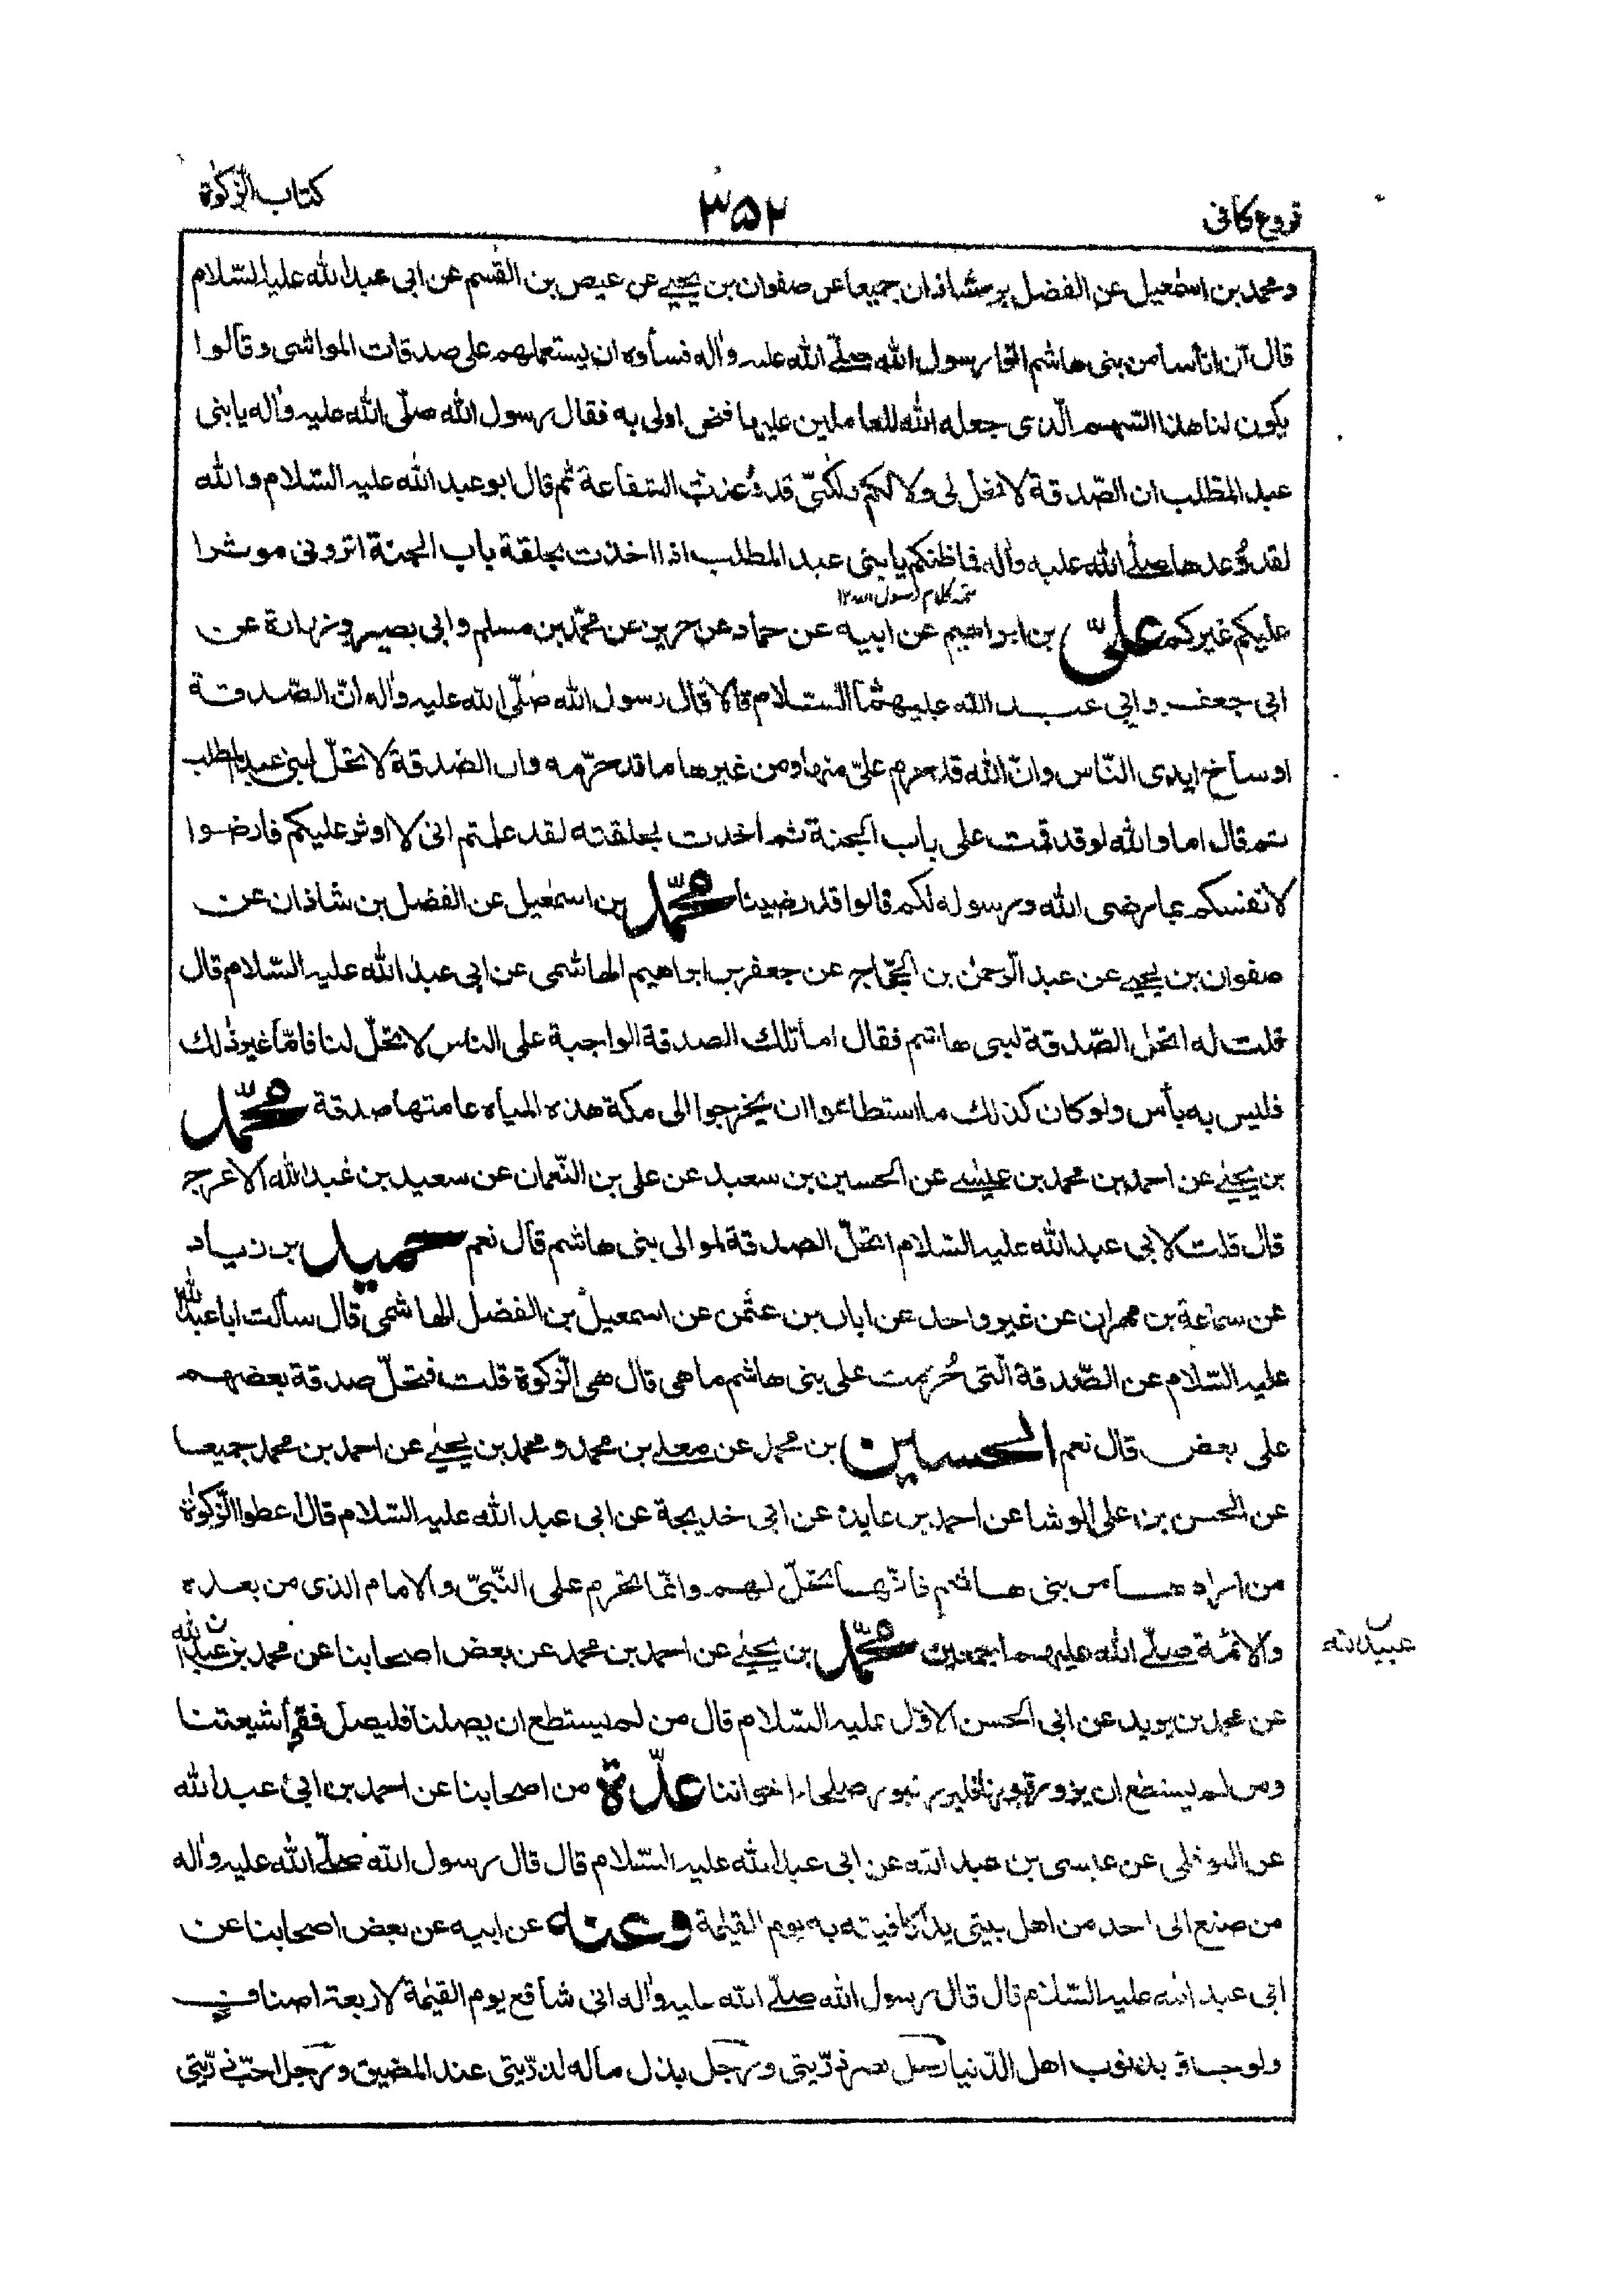 فروع كافى
٣۵٢
كتاب الزّكوٰة
ومحمد بن اسمٰعيل عن الفضل بن شاذان جميعا عن صفوان بن يحيى عن عيص بن القٰسم عن ابى عبد الله عليه السّلام
قال ان اناسا من بنى هاشم اتوا رسول الله صلّى الله عليه واٰله فسألوه ان يستعملهم على صدقات المواشى وقالوا
يكون لنا هذا السّهم الّذى جعله الله للعاملين عليها فنحن اولى به فقال رسول الله صلّى الله عليه واٰله يا بنى
عبد المطلب ان الصّدقة لا تحل لى ولا لكم ولكنّى قد وُعدت الشفاعة ثم قال ابو عبد الله عليه السّلام والله
لقد وُعدها صلّى الله عليه واٰله فما ظنكم يا بنى عبد المطلب اذا اخذت بحلقة باب الجنة اترونى موثرا
تتمة كلام رسول الله ١٢
عليكم غيركم علىّ بن ابراهيم عن ابيه عن حماد عن حريز عن محمّد بن مسلم وابى بصير وزرارة عن
ابى جعفر وابى عبد الله عليهما السّلام قالا قال رسول الله صلّى الله عليه واٰله انّ الصّدقة
اوساخ ايدى النّاس وانّ الله قد حرم علىّ منها ومن غيرها ما قد حرّمه وان الصّدقة لا تحلّ لبنى عبد المطلب
ثم قال اما والله لو قد قمت على باب الجنة ثم اخذت بحلقته لقد علمتم انى لا اوثر عليكم فارضوا
لانفسكم بما رضى الله ورسوله لكم قالوا قد رضينا محمّد بن اسمٰعيل عن الفضل بن شاذان عن
صفوان بن يحيى عن عبد الرّحمٰن بن الحجّاج عن جعفر بن ابراهيم الهاشمى عن ابى عبد الله عليه السّلام قال
قلت له اتحل الصّدقة لبنى هاشم فقال اما تلك الصدقة الواجبة على الناس لا تحلّ لنا فامّا غير ذٰلك
فليس به بأس ولو كان كذلك ما استطاعوا ان يخرجوا الى مكة هذه المياه عامتها صدقة محمّد
بن يحيٰى عن احمد بن محمد بن عيسى عن الحسين بن سعيد عن على بن النّعمان عن سعيد بن عبد الله الاعرج
قال قلت لابى عبد الله عليه السّلام اتحلّ الصدقة لموالى بنى هاشم قال نعم حميد بن زياد
عن سماعة بن مهران عن غير واحد عن ابان بن عثمٰن عن اسمعيل بن الفضل الهاشمى قال سألت ابا عبد الله
عليه السّلام عن الصّدقة الّتى حُرمت على بنى هاشم ما هى قال هى الزّكوة قلت فتحلّ صدقة بعضهم
على بعض قال نعم الحسين بن محمد عن معلى بن محمد ومحمد بن يحيٰى عن احمد بن محمد جميعا
عن الحسن بن على الوشا عن احمد بن عايذ عن ابى خديجة عن ابى عبد الله عليه السّلام قال اعطوا الزّكوٰة
من ارادها من بنى هاشم فانّها تحلّ لهم وانّما تحرم على النّبىّ والامام الذى من بعده
والائمة صلّى الله عليهم اجمعين محمّد بن يحيٰى عن احمد بن محمد عن بعض اصحابنا عن محمد بن عبد الله
عبيد الله
عن محمد بن يزيد عن ابى الحسن الاوّل عليه السّلام قال من لم يستطع ان يصلنا فليصل فقراء شيعتنا
ومن لم يستطع ان يزور قبورنا فليزر قبور صلحاء اخواننا عدّة من اصحابنا عن احمد بن ابى عبد الله
عن النوفلى عن عيسى بن عبد الله عن ابى عبد الله عليه السّلام قال قال رسول الله صلّى الله عليه واٰله
من صنع الى احد من اهل بيتى يدًا كافيته به يوم القيٰمة وعنه عن ابيه عن بعض اصحابنا عن
ابى عبد الله عليه السّلام قال قال رسول الله صلّى الله عليه واٰله انى شافع يوم القيٰمة لاربعة اصناف
ولو جاؤ بذنوب اهل الدّنيا رجل نصر ذرّيتى ورجل بذل ماله لذرّيتى عند المضيق ورجل احبّ ذرّيتى